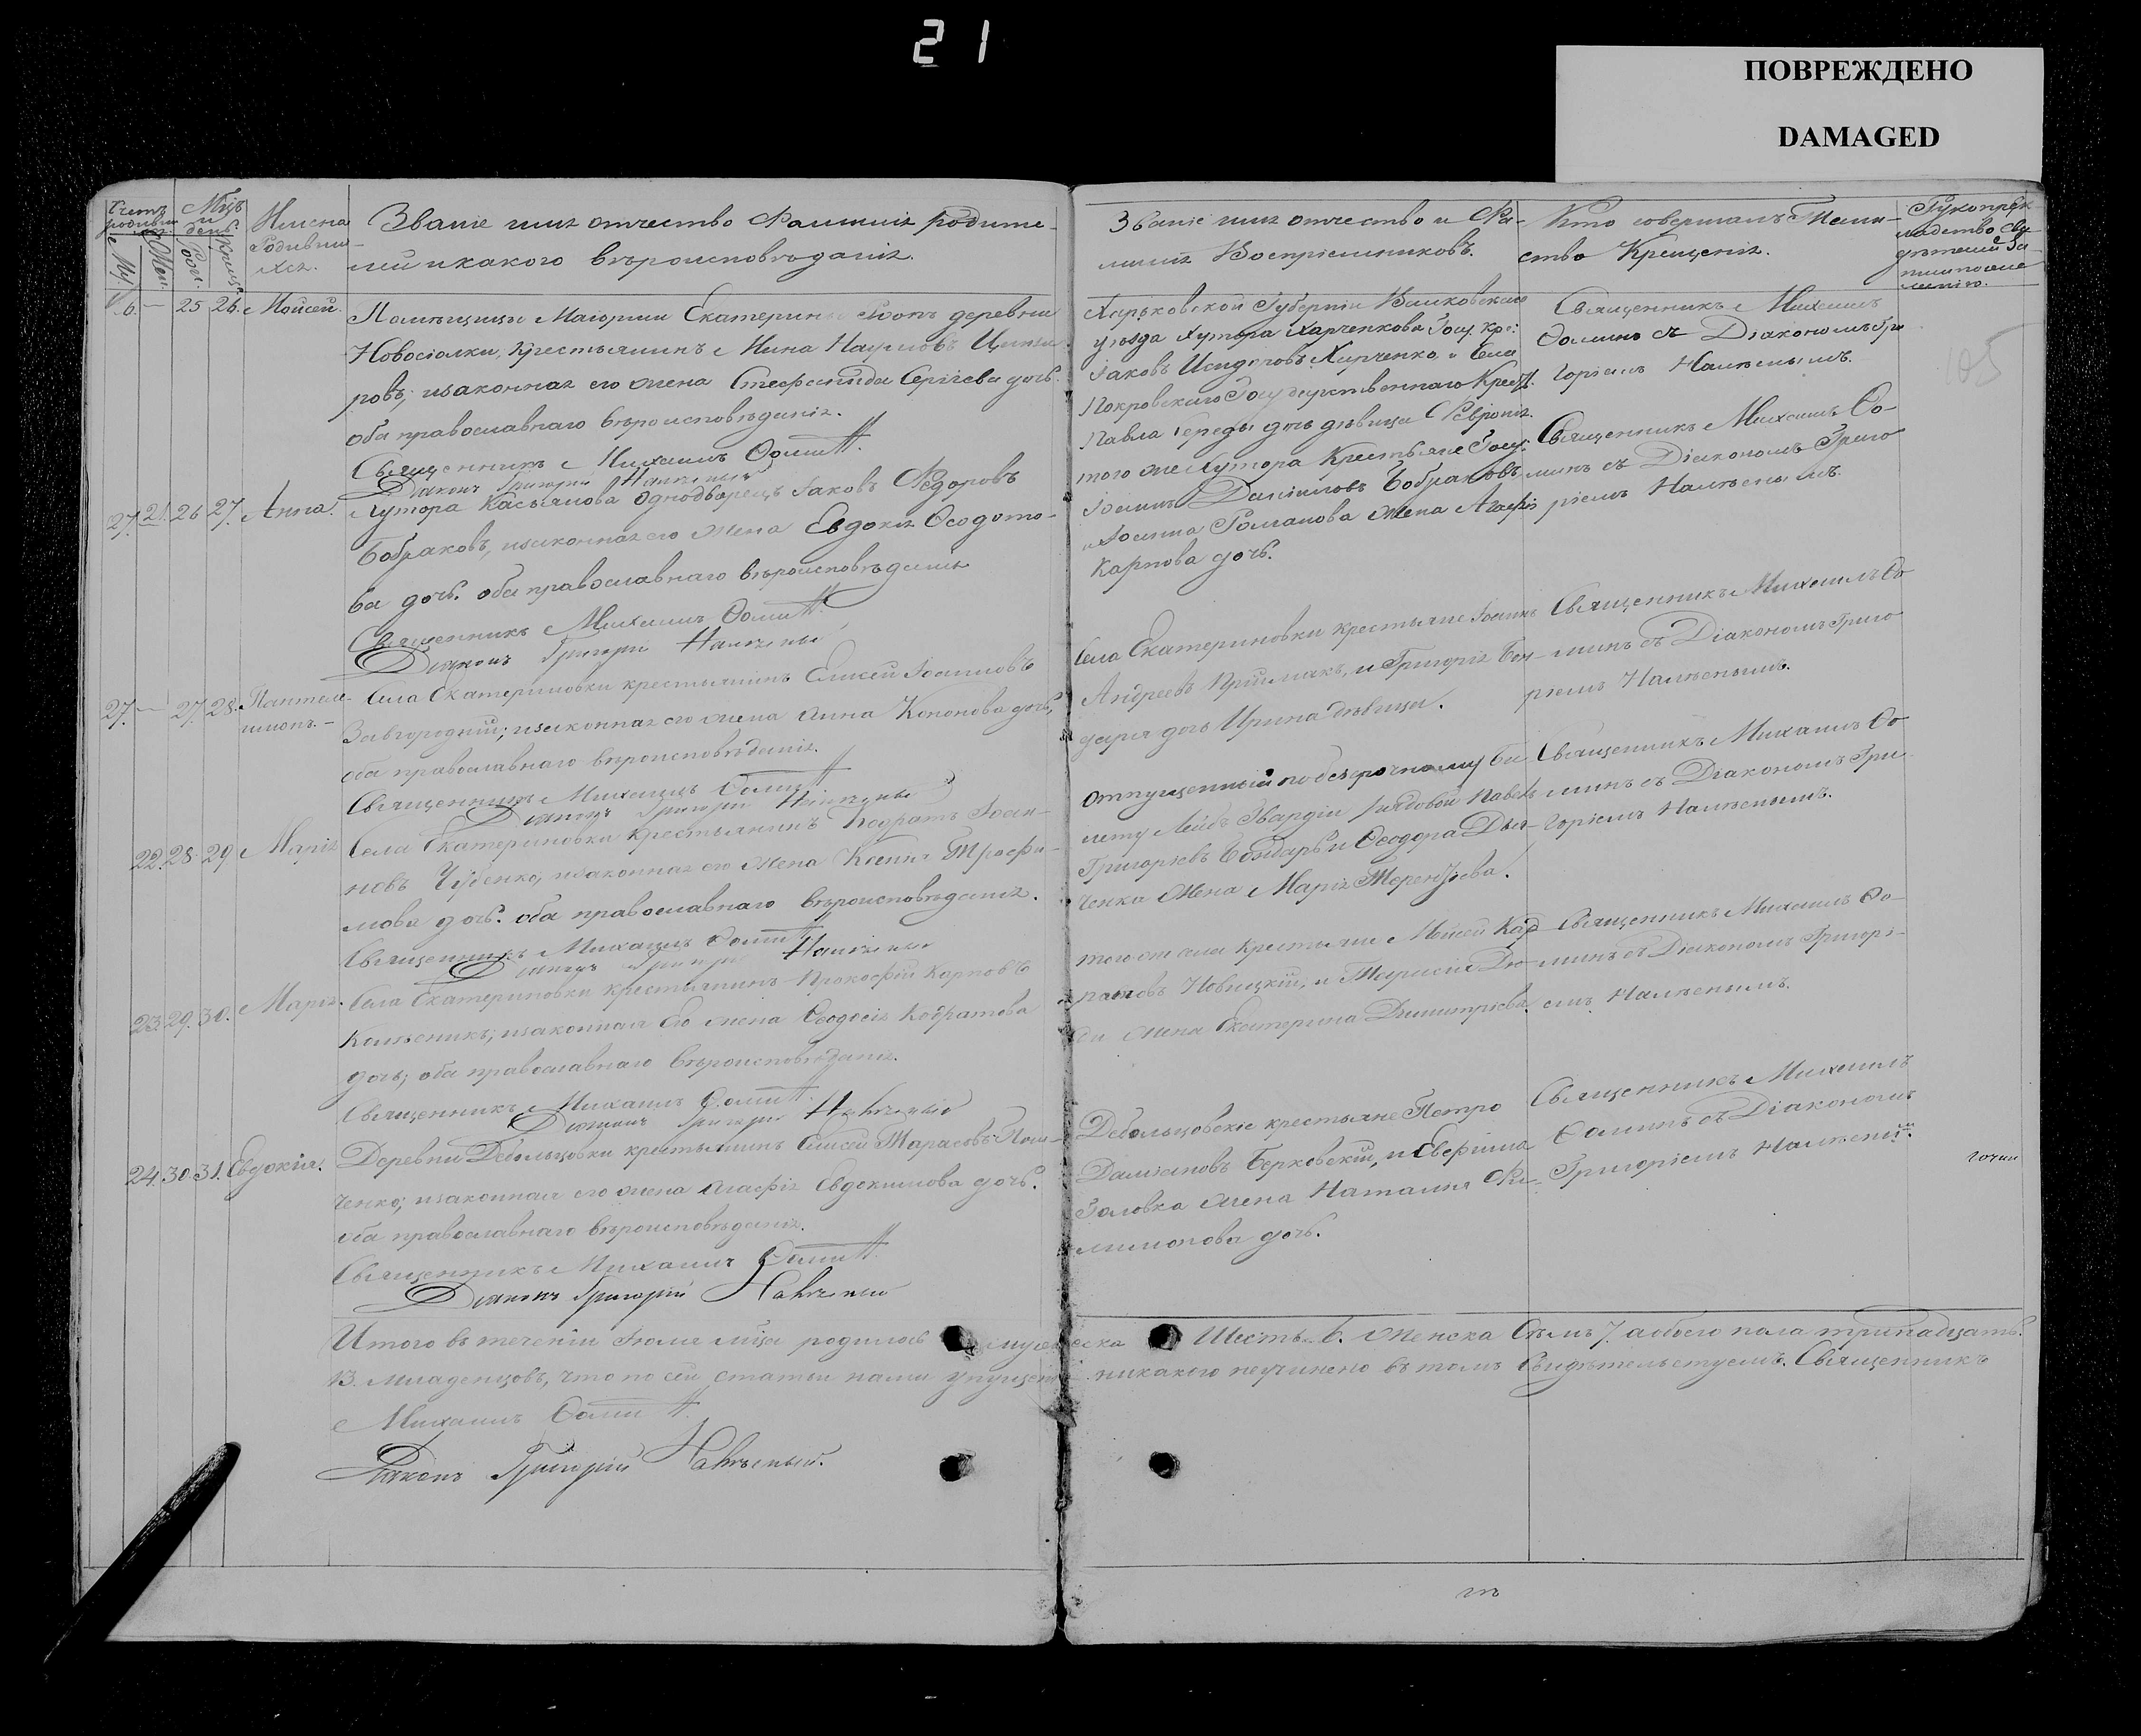 21
ПОВРЕЖДЕНО
DAMAGED
Счетъ родившихся
Муж.
Жен.
Мѣсъ и день
Рожд.
Крещ.
Имена Родившихся.
Званіе имя отчество Фамилія родите-
лей и какого вѣроисповѣданія.
Званіе имя отчество и Фа-
милія Воспріемниковъ.
Кто совершалъ Таин-
ство Крещенія.
6. — 25 26. Моисей.
Помѣщицы Маіорши Екатерины деревни
Новосіолки, крестьянинъ Мина Наумовъ
ровъ, изаконная его жена Стефанида Сергіева дочь.
оба православнаго вѣроисповѣданія.
Священникъ Михаилъ Ѳоминъ
Діаконъ Григорій
Харьковской Губерніи Валковскаго
уѣзда Хутора Харченкова Госу. Кре:
Іаковъ Исидоровъ Харченко и Села
Покровскаго Государственнаго Крест.
Павла Середы дочь дѣвица Февронія.
Священникъ Михаилъ
Ѳоминъ съ Діакономъ Гри
горіемъ
105
27. 21. 26 27. Анна.
Хутора Касьянова Однодворецъ Іаковъ Ѳедоровъ
Бобраковъ, изаконная его жена Евдокія Ѳеодото-
ва дочь. оба православнаго вѣроисповѣданія
Священникъ Михаилъ Ѳоминъ
Діаконъ Григорій
того же Хутора Крестьяне Госу:
Іоаннъ Даніиловъ Бобраковъ
и Іоанна Романова жена Агафія
Карпова дочь.
Священникъ Михаилъ Ѳо-
минъ съ Діакономъ Григо
ріемъ
27. — 27. 28. Пантеле-
имонъ. —
Села Екатериновки крестьянинъ Елисей Іоанновъ
Завгородній; изаконная его жена Анна Кононова дочь,
оба православнаго вѣроисповѣданія.
Священникъ Михаилъ Ѳоминъ
Діаконъ Григорій
Села Екатериновки крестьяне Іоаннъ
Андреевъ Приймакъ, и Григорія Бон-
даря дочь Ирина дѣвица.
Священникъ Михаилъ Ѳо
минъ съ Діакономъ Григо
ріемъ
22. 28. 29 Марія
Села Екатериновки крестьянинъ Кодратъ Іоан-
новъ Чубенко, изаконная его жена Ксенія Трофи-
мова дочь. оба православнаго вѣроисповѣданія.
Священникъ Михаилъ Ѳоминъ
Діаконъ Григорій
отпущенный по безсрочному би
лету Лейбъ Гвардіи рядовой Павелъ
Григорьевъ Бондарь и Ѳеодора Дья-
ченка жена Марія Терентьева.
Священникъ Михаилъ Ѳо
минъ съ Діакономъ Гри
горіемъ
23. 29. 30. Марія.
Села Екатериновки крестьянинъ Прокофій Карповъ
Колѣсникъ; изаконная его жена Ѳеодосія Кодратова
дочь; оба православнаго вѣроисповѣданія.
Священникъ Михаилъ Ѳоминъ
Діаконъ Григорій
того же села крестьяне Моисей Код-
ратовъ Новицкій, и
жена Екатерина Димитріева.
Священникъ Михаилъ Ѳо-
минъ съ Діакономъ Григорі-
емъ
24. 30 31. Евдокія.
Деревни Дебольцовки крестьянинъ Елисей Тарасовъ
ченко; изаконная его жена Агафія Евдокимова дочь.
оба православнаго вѣроисповѣданія.
Священникъ Михаилъ Ѳоминъ
Діаконъ Григорій
Дебольцовскіе крестьяне Петро
Даміановъ Берковскій, и
Головка жена Наталія Фи-
лимонова дочь.
Священникъ Михаилъ
Ѳоминъ съ Діакономъ
Григоріемъ
Итого въ теченіи Іюля мѣца родилось мужеска Шесть 6. женска Семь 7. а обоего пола тринадцать.
13. младенцовъ, что по сей статьи нами упущенія никакого неучинено въ томъ Свидѣтельствуемъ. Священникъ
Михаилъ Ѳоминъ
Діаконъ Григорій